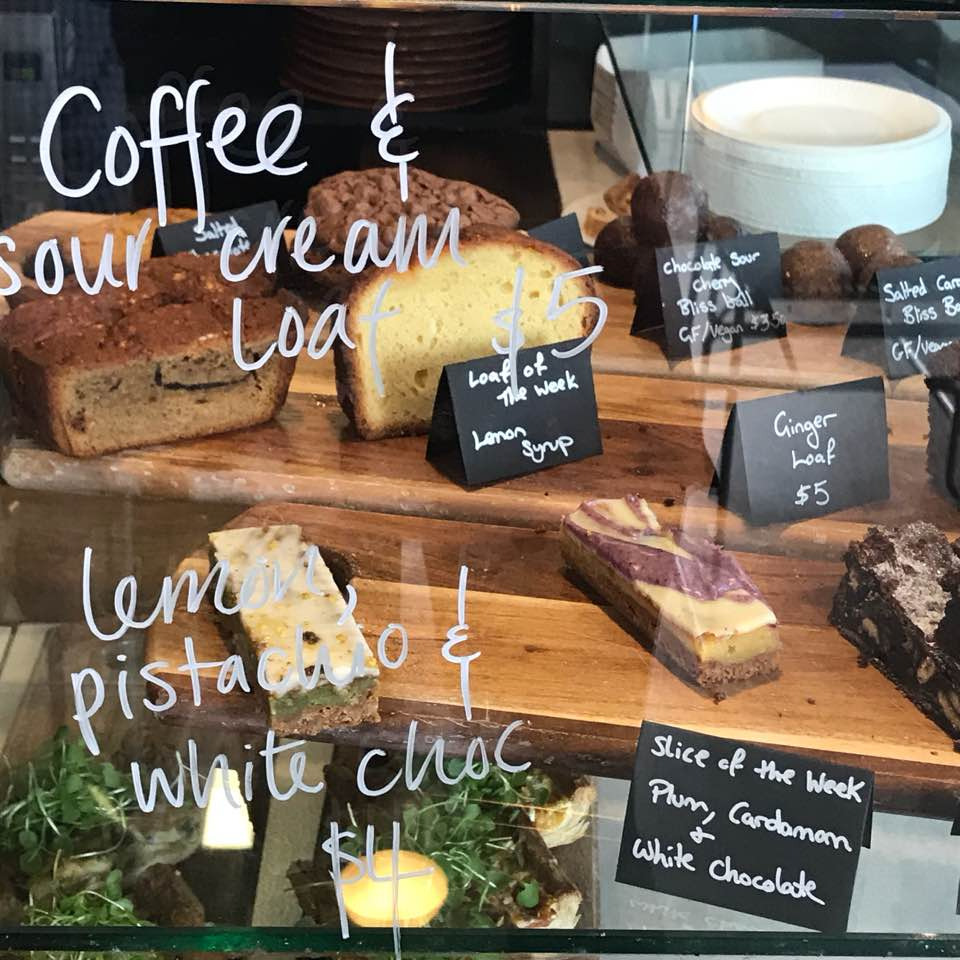 Coffee &
sour cream
Loaf $5
Salted
Chocolate Sour
Cherry
Bliss ball
GF/Vegan $3.50
Salted
Bliss
GF/Vegan
Loaf of
The Week
Lemon
Syrup
Ginger
Loaf
$5
lemon,
pistachio &
white choc
$4
Slice of the Week
Plum, Cardamom
&
White Chocolate